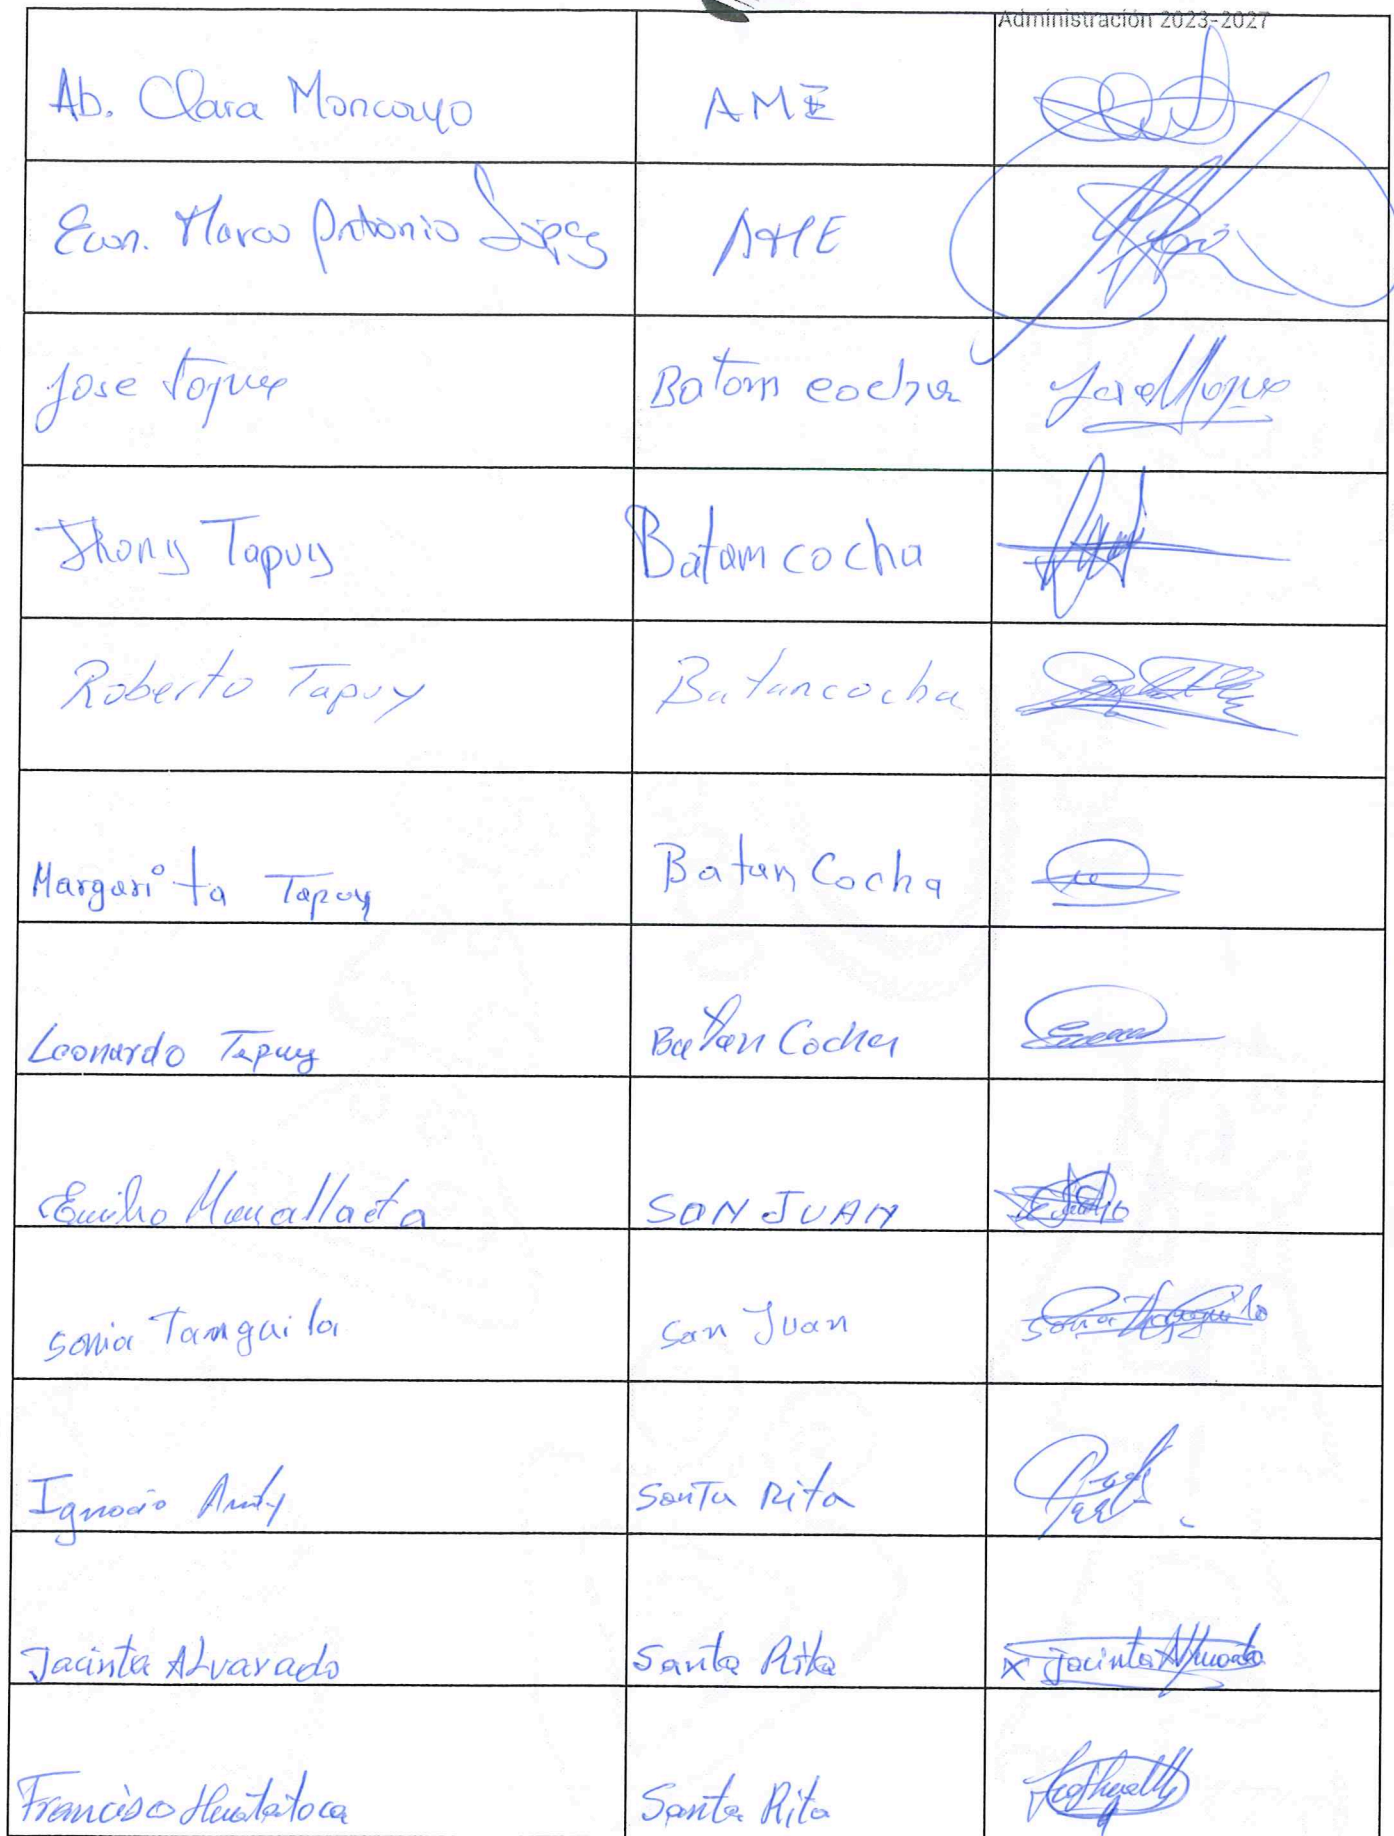 Administración 2023-2027
Ab. Clara Moncayo AME
Econ. Marco Antonio López AME
Jose Batam cocha
Jhony Tapuy Batam cocha
Roberto Tapuy Batancocha
Margarita Tapuy Batan Cocha
Leonardo Tapuy Batan Cocha
Emilho Mamallacta SAN JUAN
sonia Tamguila san Juan Sonia
Ignacio Andy Santa Rita
Jacinta Alvarado Santa Rita x Jacinta Alvarado
Francisco Huatatoca Santa Rita